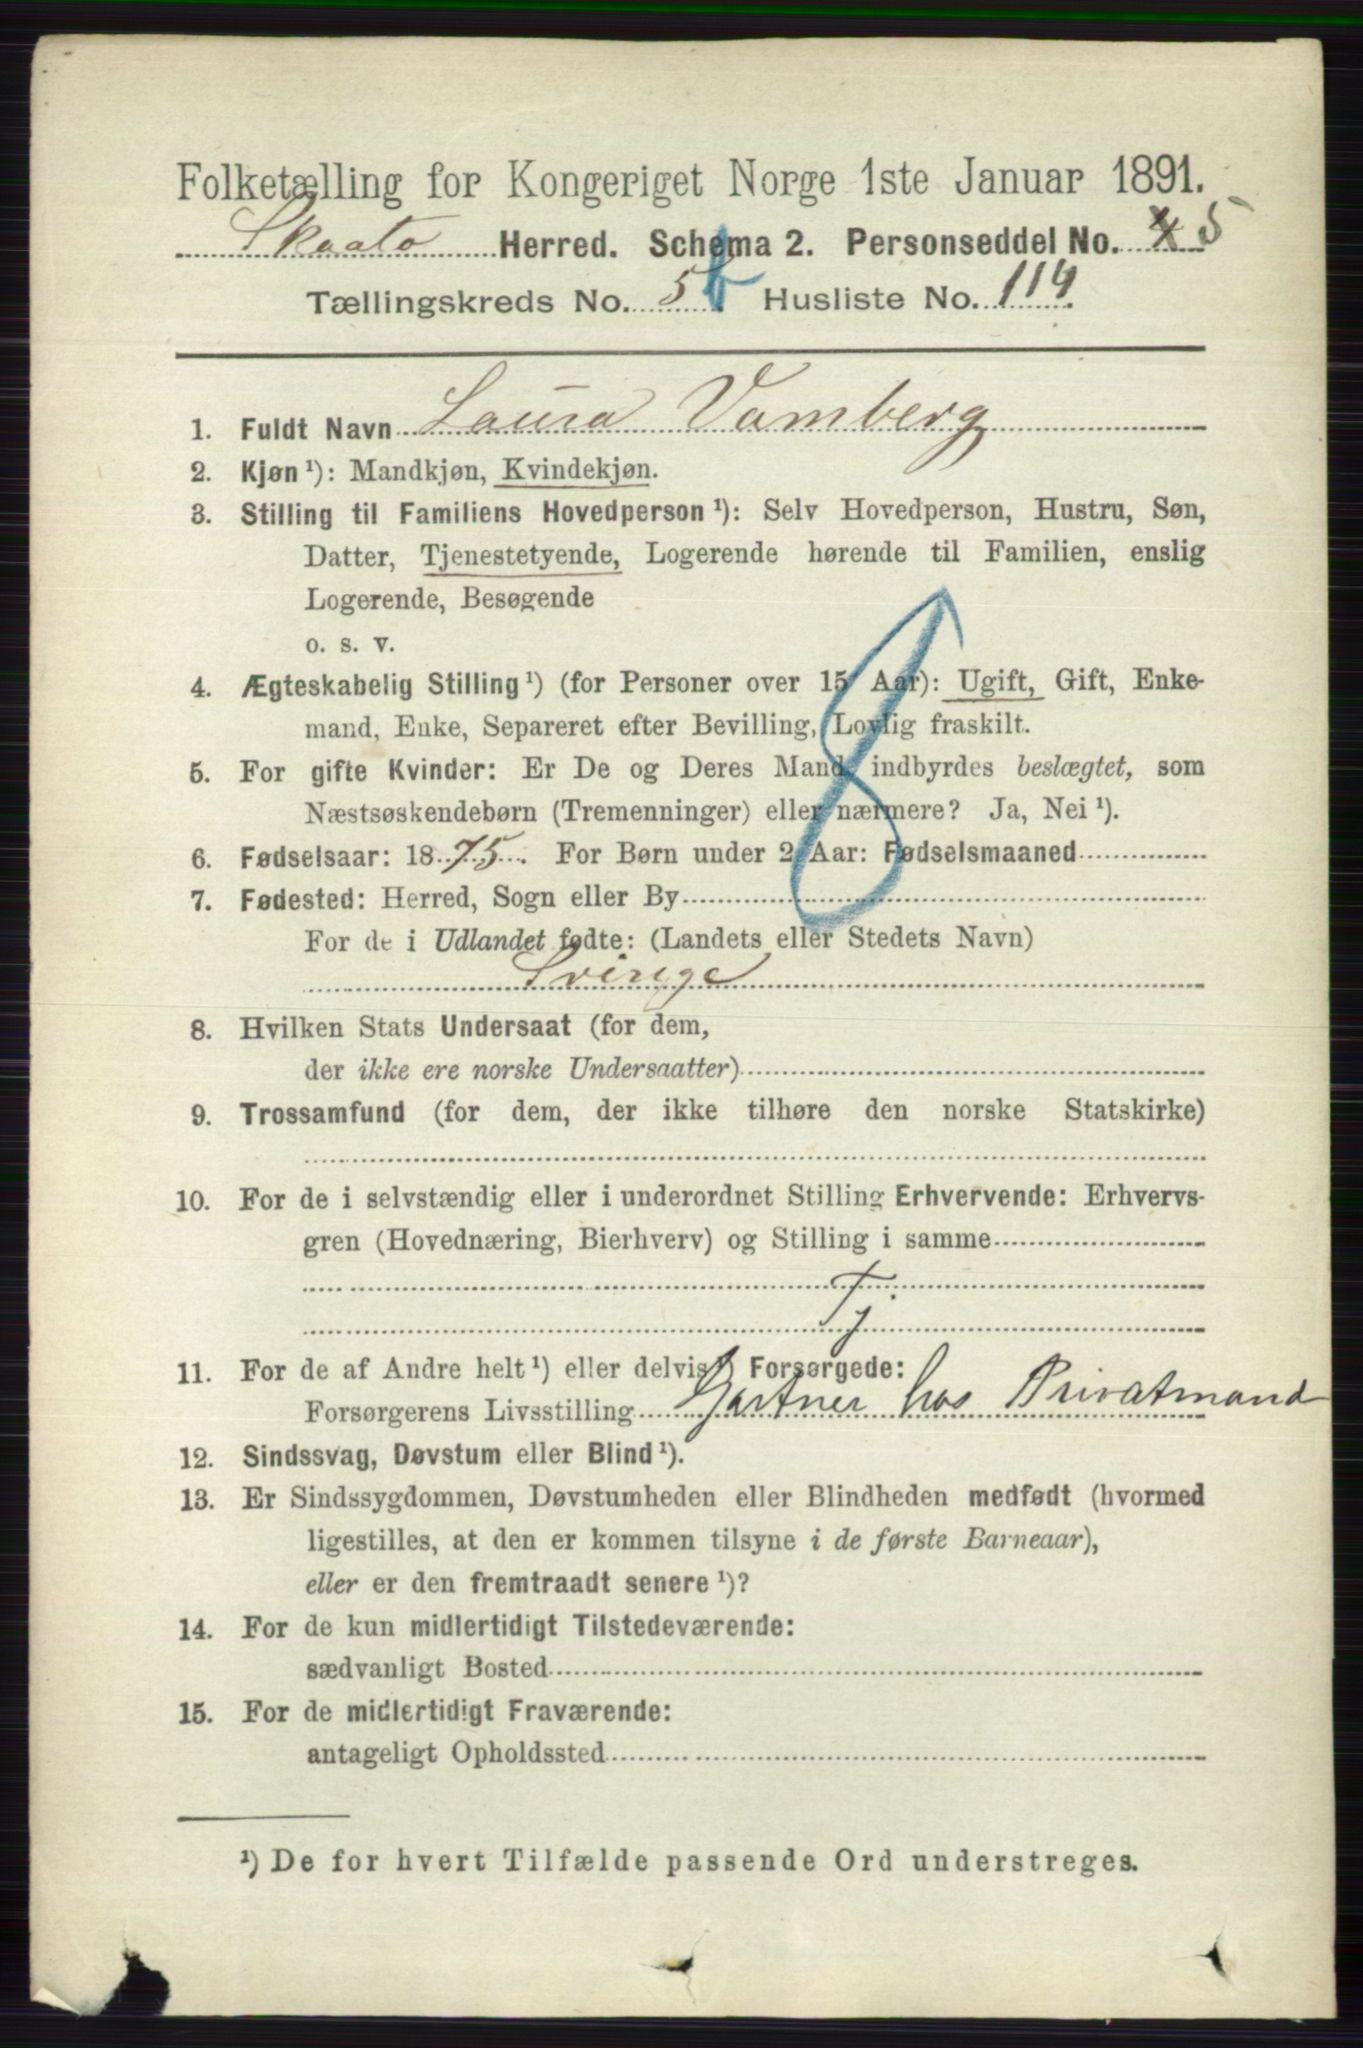 Folketælling for Kongeriget Norge 1ste Januar 1891.
Skaato Herred. Schema 2. Personseddel No. 4 5
Tællingskreds No. 5 b Husliste No. 114
1. Fuldt Navn Laura Vamberg
2. Kjøn ¹): Mandkjøn, Kvindekjøn.
3. Stilling til Familiens Hovedperson ¹): Selv Hovedperson, Hustru, Søn,
Datter, Tjenestetyende, Logerende hørende til Familien, enslig
Logerende, Besøgende
o. s. v.
4. Ægteskabelig Stilling ¹) (for Personer over 15 Aar): Ugift, Gift, Enke-
mand, Enke, Separeret efter Bevilling, Lovlig fraskilt.
5. For gifte Kvinder: Er De og Deres Mand indbyrdes beslægtet, som
Næstsøskendebørn (Tremenninger) eller nærmere? Ja, Nei ¹).
6. Fødselsaar: 1875. For Børn under 2 Aar: Fødselsmaaned
7. Fødested: Herred, Sogn eller By
For de i Udlandet fødte: (Landets eller Stedets Navn)
Sverige
8. Hvilken Stats Undersaat (for dem,
der ikke ere norske Undersaatter)
9. Trossamfund (for dem, der ikke tilhøre den norske Statskirke)
10. For de i selvstændig eller i underordnet Stilling Erhvervende: Erhvervs-
gren (Hovednæring, Bierhverv) og Stilling i samme
Tj
11. For de af Andre helt ¹) eller delvis ¹) Forsørgede:
Forsørgerens Livsstilling Gartner hos Privatmand
12. Sindssvag, Døvstum eller Blind ¹).
13. Er Sindssygdommen, Døvstumheden eller Blindheden medfødt (hvormed
ligestilles, at den er kommen tilsyne i de første Barneaar),
eller er den fremtraadt senere ¹)?
14. For de kun midlertidigt Tilstedeværende:
sædvanligt Bosted
15. For de midlertidigt Fraværende:
antageligt Opholdssted
¹) De for hvert Tilfælde passende Ord understreges.